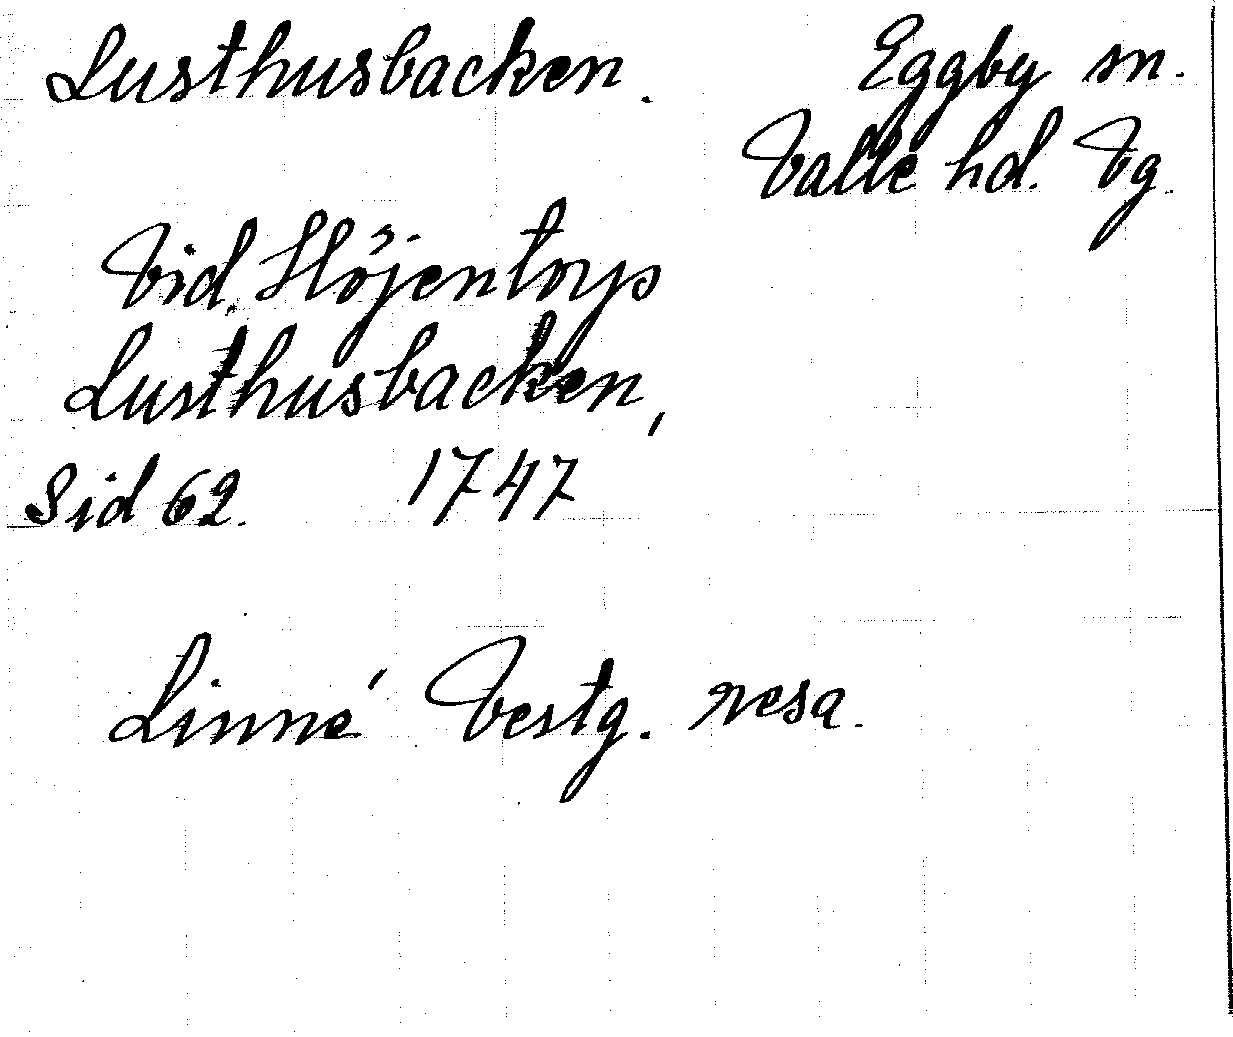 Lusthusbacken. Eggby sn.
Valle hd. Vg.
Vid. Höjentorps
Lusthusbacken,
Sid 62. 1747
Linné Vestg. resa.